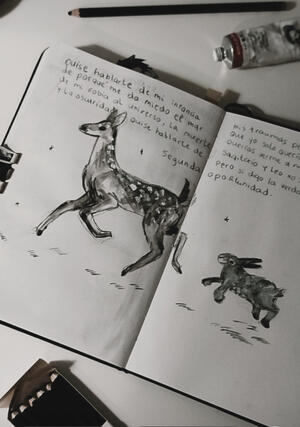 quise hablarte de mi infancia
de porque me da miedo el mar
de mi fobia al universo, la muerte
y la oscuridad quise hablarte de
Segunda
mis traumas
que yo solo
querías verme a
sagitario y leo no
pero si digo la verdad
oportunidad.